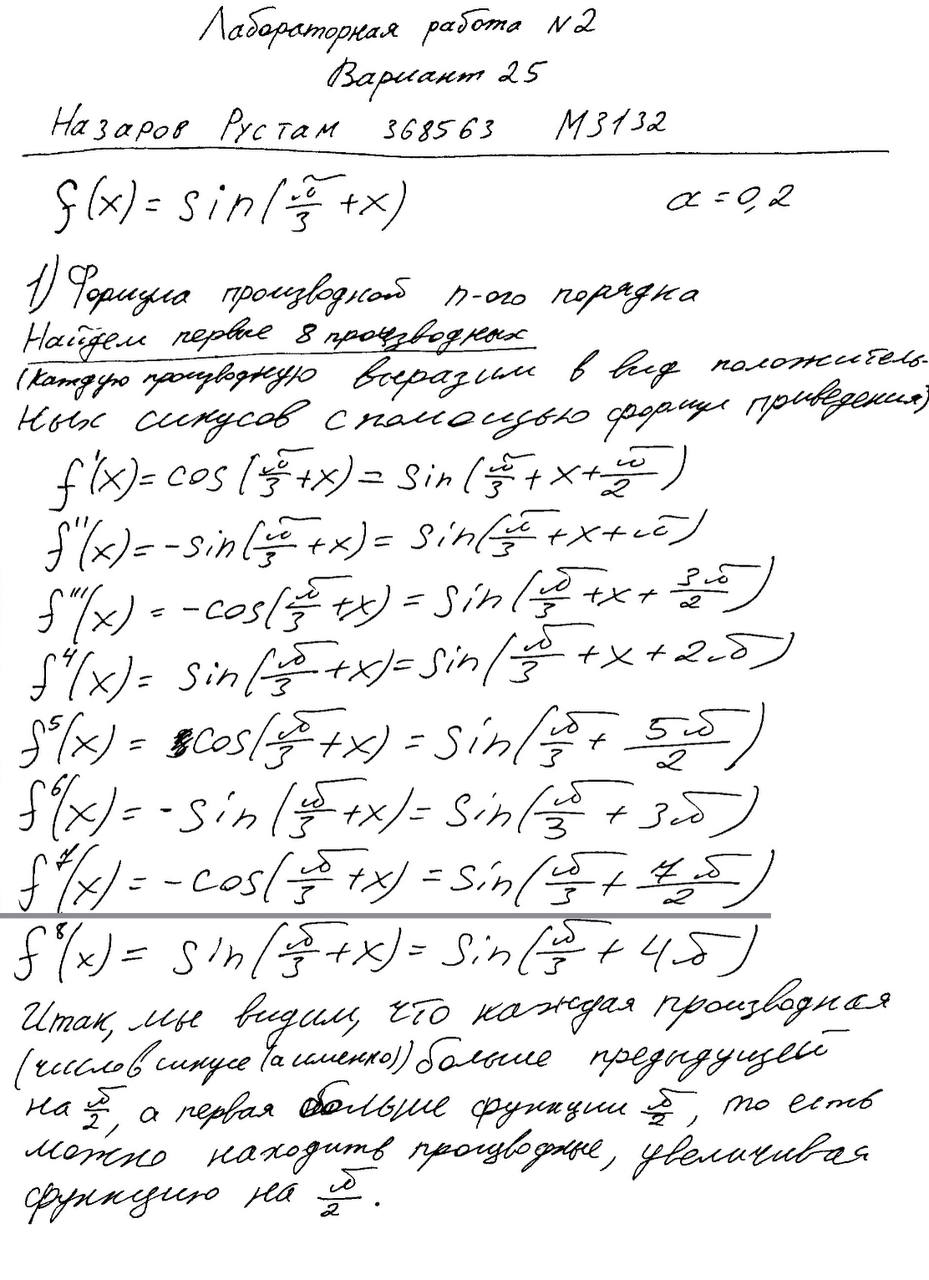 Лабораторная работа N2
Вариант 25
Назаров Рустам 368563 М3132
f(x) = sin(π/3 + x) a = 0,2
1) Формула производной n-ого порядка
Найдем первые 8 производных
(Каждую производную выразим в вид положитель-
ных синусов с помощью формул приведения)
f'(x) = cos(π/3 + x) = sin(π/3 + x + π/2)
f''(x) = -sin(π/3 + x) = sin(π/3 + x + π)
f'''(x) = -cos(π/3 + x) = sin(π/3 + x + 3π/2)
f⁴(x) = sin(π/3 + x) = sin(π/3 + x + 2π)
f⁵(x) = cos(π/3 + x) = sin(π/3 + 5π/2)
f⁶(x) = -sin(π/3 + x) = sin(π/3 + 3π)
f⁷(x) = -cos(π/3 + x) = sin(π/3 + 7π/2)
f⁸(x) = sin(π/3 + x) = sin(π/3 + 4π)
Итак, мы видим, что каждая производная
(число в синусе (а именно)) больше предыдущей
на π/2, а первая больше функции π/2, то есть
можно находить производные, увеличивая
функцию на π/2.